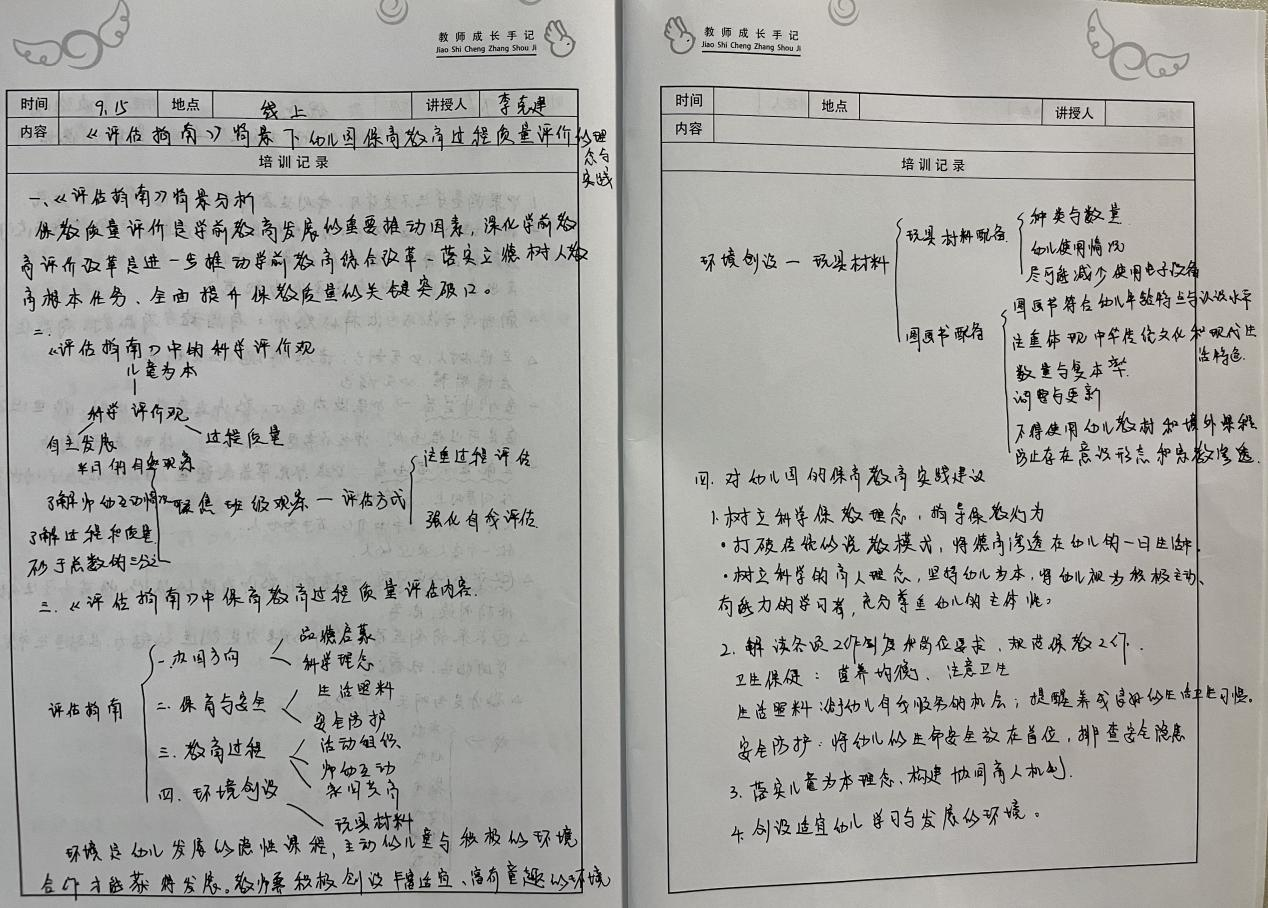 教师成长手记
Jiao Shi Cheng Zhang Shou Ji
时间 9.15 地点 线上 讲授人 李克建
内容 《评估指南》背景下幼儿园保育教育过程质量评价的理念与实践
培训记录
一、《评估指南》背景分析
保教质量评价是学前教育发展的重要推动因素，深化学前教
育评价改革是进一步推动学前教育综合改革－落实立德树人教
育根本任务、全面提升保教质量的关键突破口。
二、
《评估指南》中的科学评价观
儿童为本
科学评价观
自主发展
过程质量
半日的自然观察
了解师幼互动情况
聚焦班级观察－评估方式
注重过程评估
强化自我评估
了解过程和质量
不少于总数的三分之一
三、《评估指南》中保育教育过程质量评估内容.
评估指南
一.办园方向
品德启蒙
科学理念
二.保育与安全
生活照料
安全防护
三.教育过程
活动组织
师幼互动
家园共育
四.环境创设
玩具材料
环境是幼儿发展的隐性课程，主动的儿童与积极的环境
合作才能获得发展。教师要积极创设丰富适宜、富有童趣的环境
教师成长手记
Jiao Shi Cheng Zhang Shou Ji
时间 地点 讲授人
内容
培训记录
环境创设－玩具材料
玩具材料配备
种类与数量
幼儿使用情况
尽可能减少使用电子设备
图画书配备
图画书符合幼儿年龄特点与认识水平
注重体现中华传统文化和现代生活特色
数量与复本率.
调整与更新
不得使用幼儿教材和境外课程
防止存在意识形态和宗教渗透.
四.对幼儿园的保育教育实践建议
1.树立科学保教理念，指导保教行为
·打破传统的说教模式，将德育渗透在幼儿的一日生活中.
·树立科学的育人理念，坚持幼儿为本，将幼儿视为积极主动、
有能力的学习者，充分尊重幼儿的主体性。
2.解读各项工作制度和岗位要求，规范保教工作.
卫生保健：营养均衡、注意卫生
生活照料：给幼儿自我服务的机会；提醒养成良好的生活卫生习惯。
安全防护：将幼儿的生命安全放在首位，排查安全隐患
3.落实儿童为本理念、构建协同育人机制.
4.创设适宜幼儿学习与发展的环境。